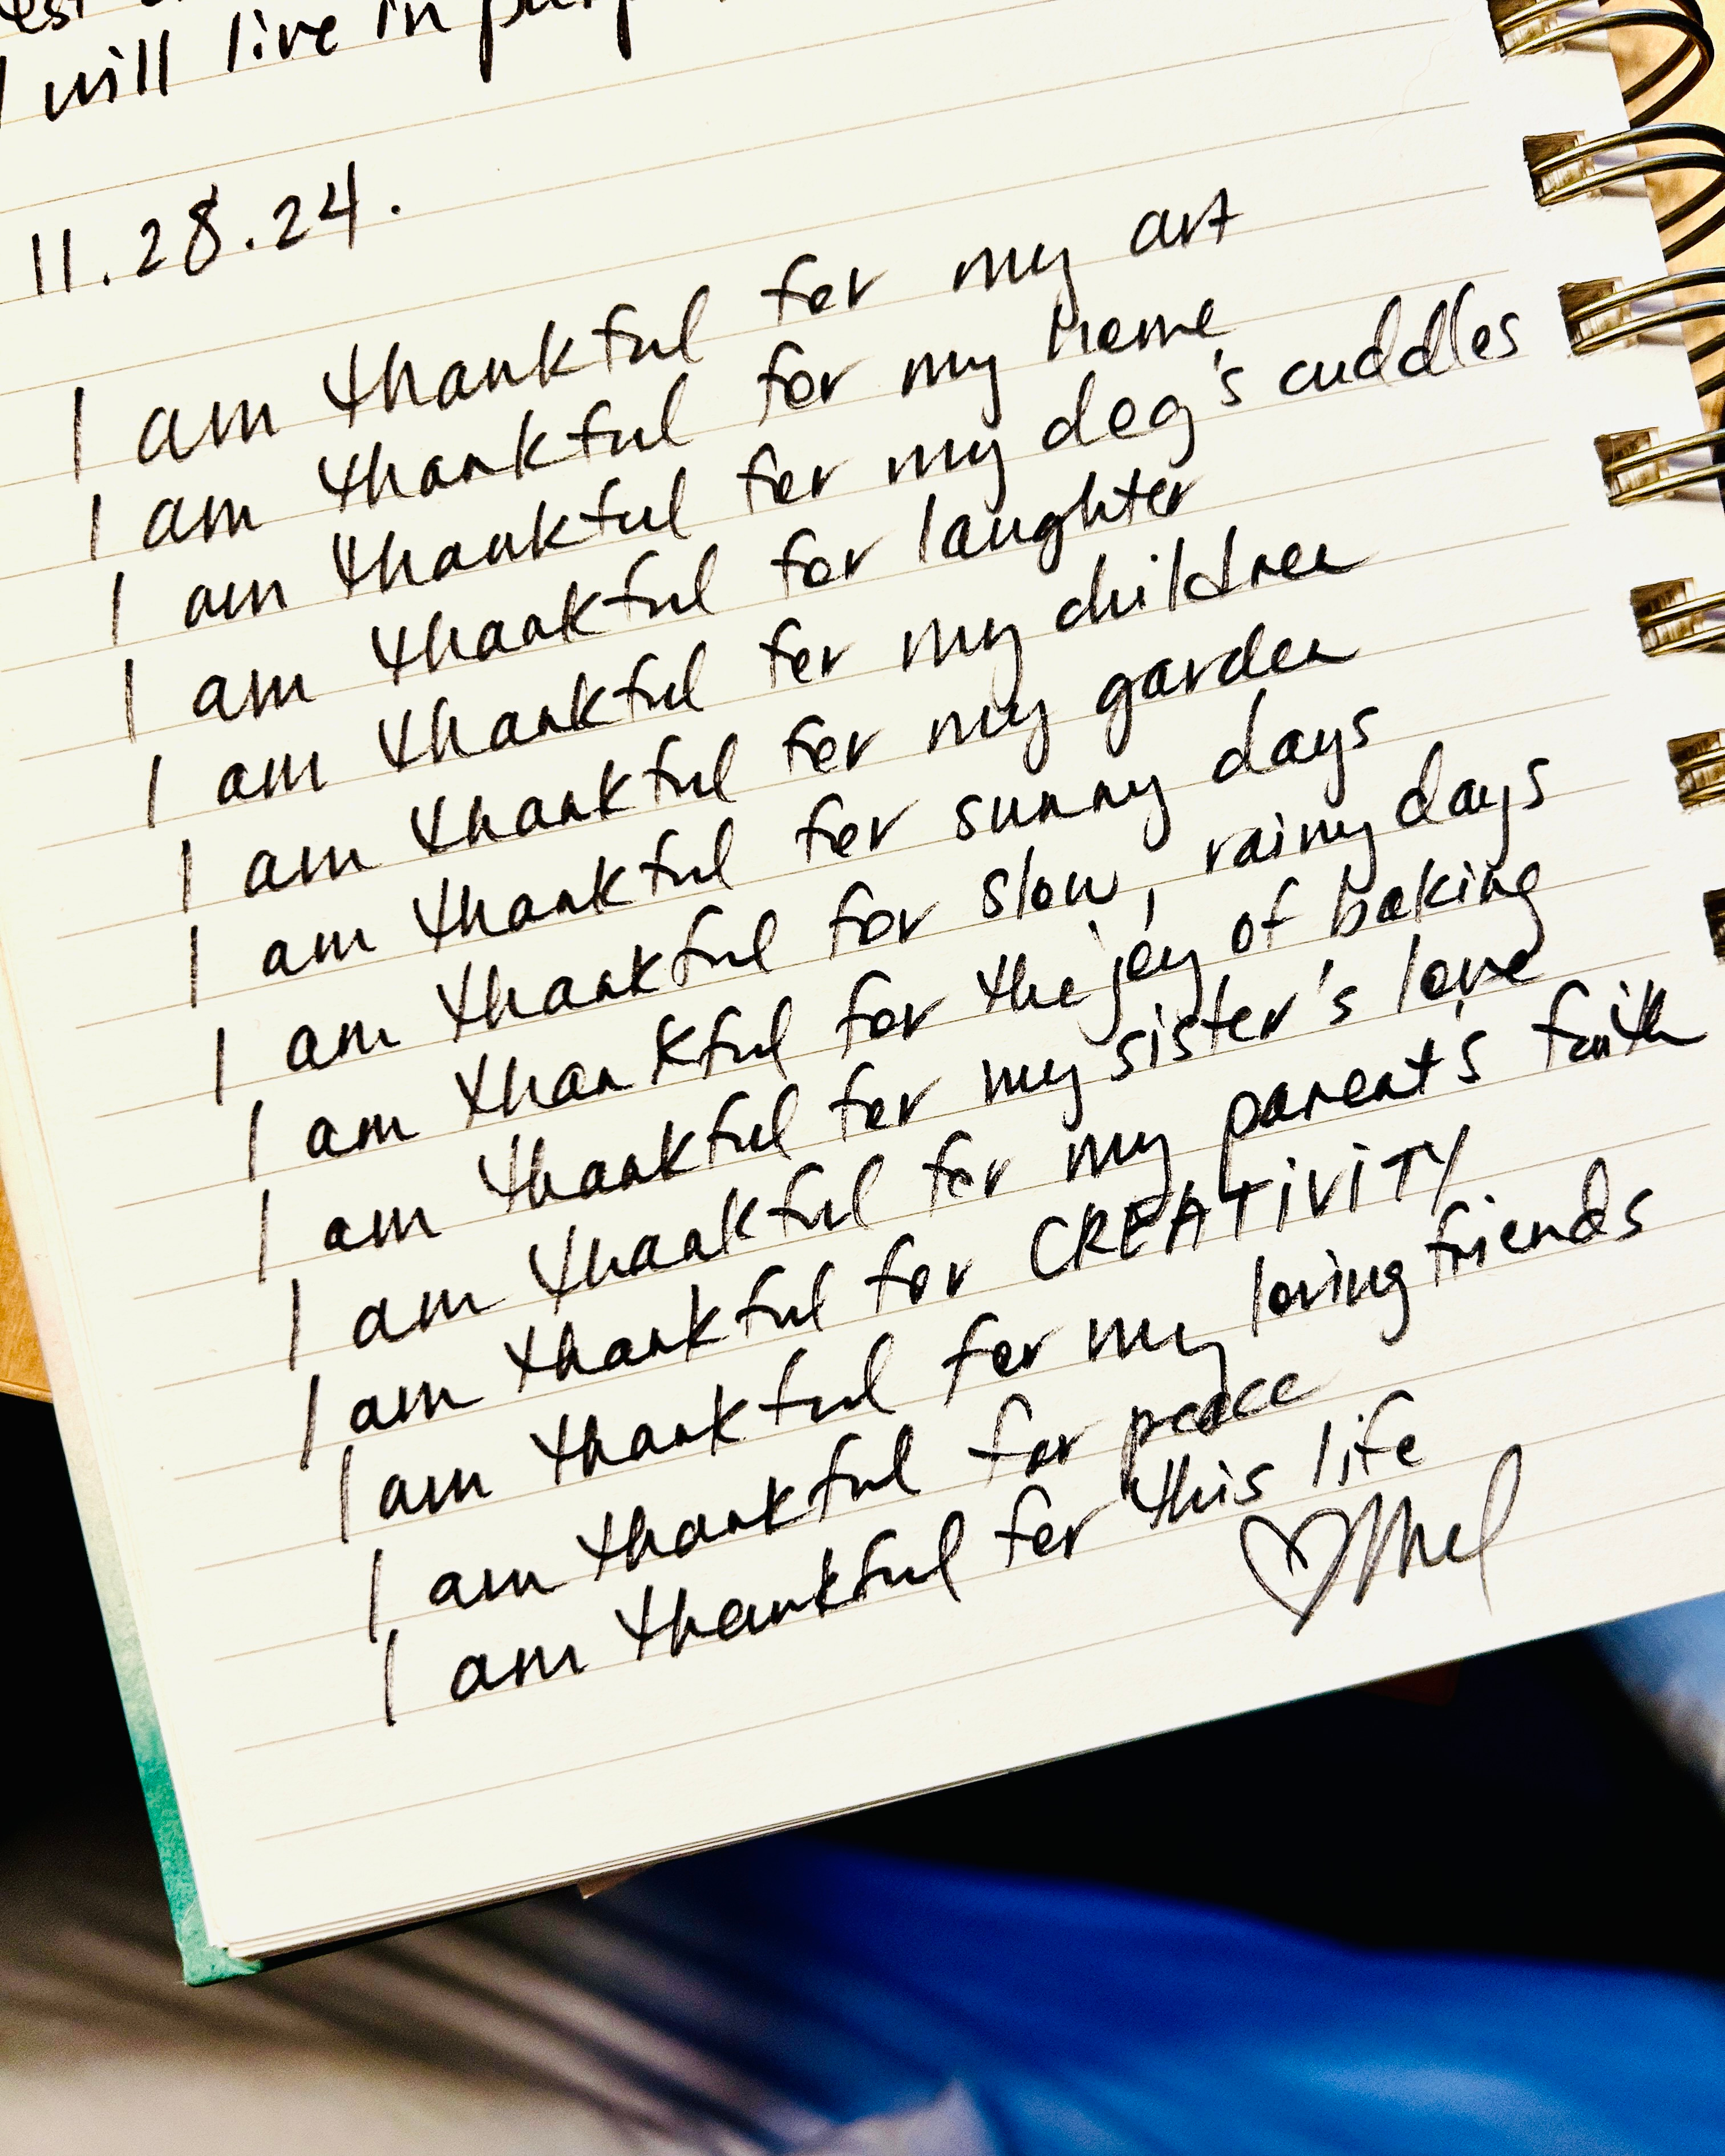 I will live in
11.28.24.
I am thankful for my art
I am thankful for my home
I am thankful for my dog's cuddles
I am thankful for laughter
I am thankful for my children
I am thankful for my garden
I am thankful for sunny days
I am thankful for slow, rainy days
I am thankful for the joy of baking
I am thankful for my sister's love
I am thankful for my parent's faith
I am thankful for CREATIVITY
I am thankful for my loving friends
I am thankful for peace
I am thankful for this life
♡Mel